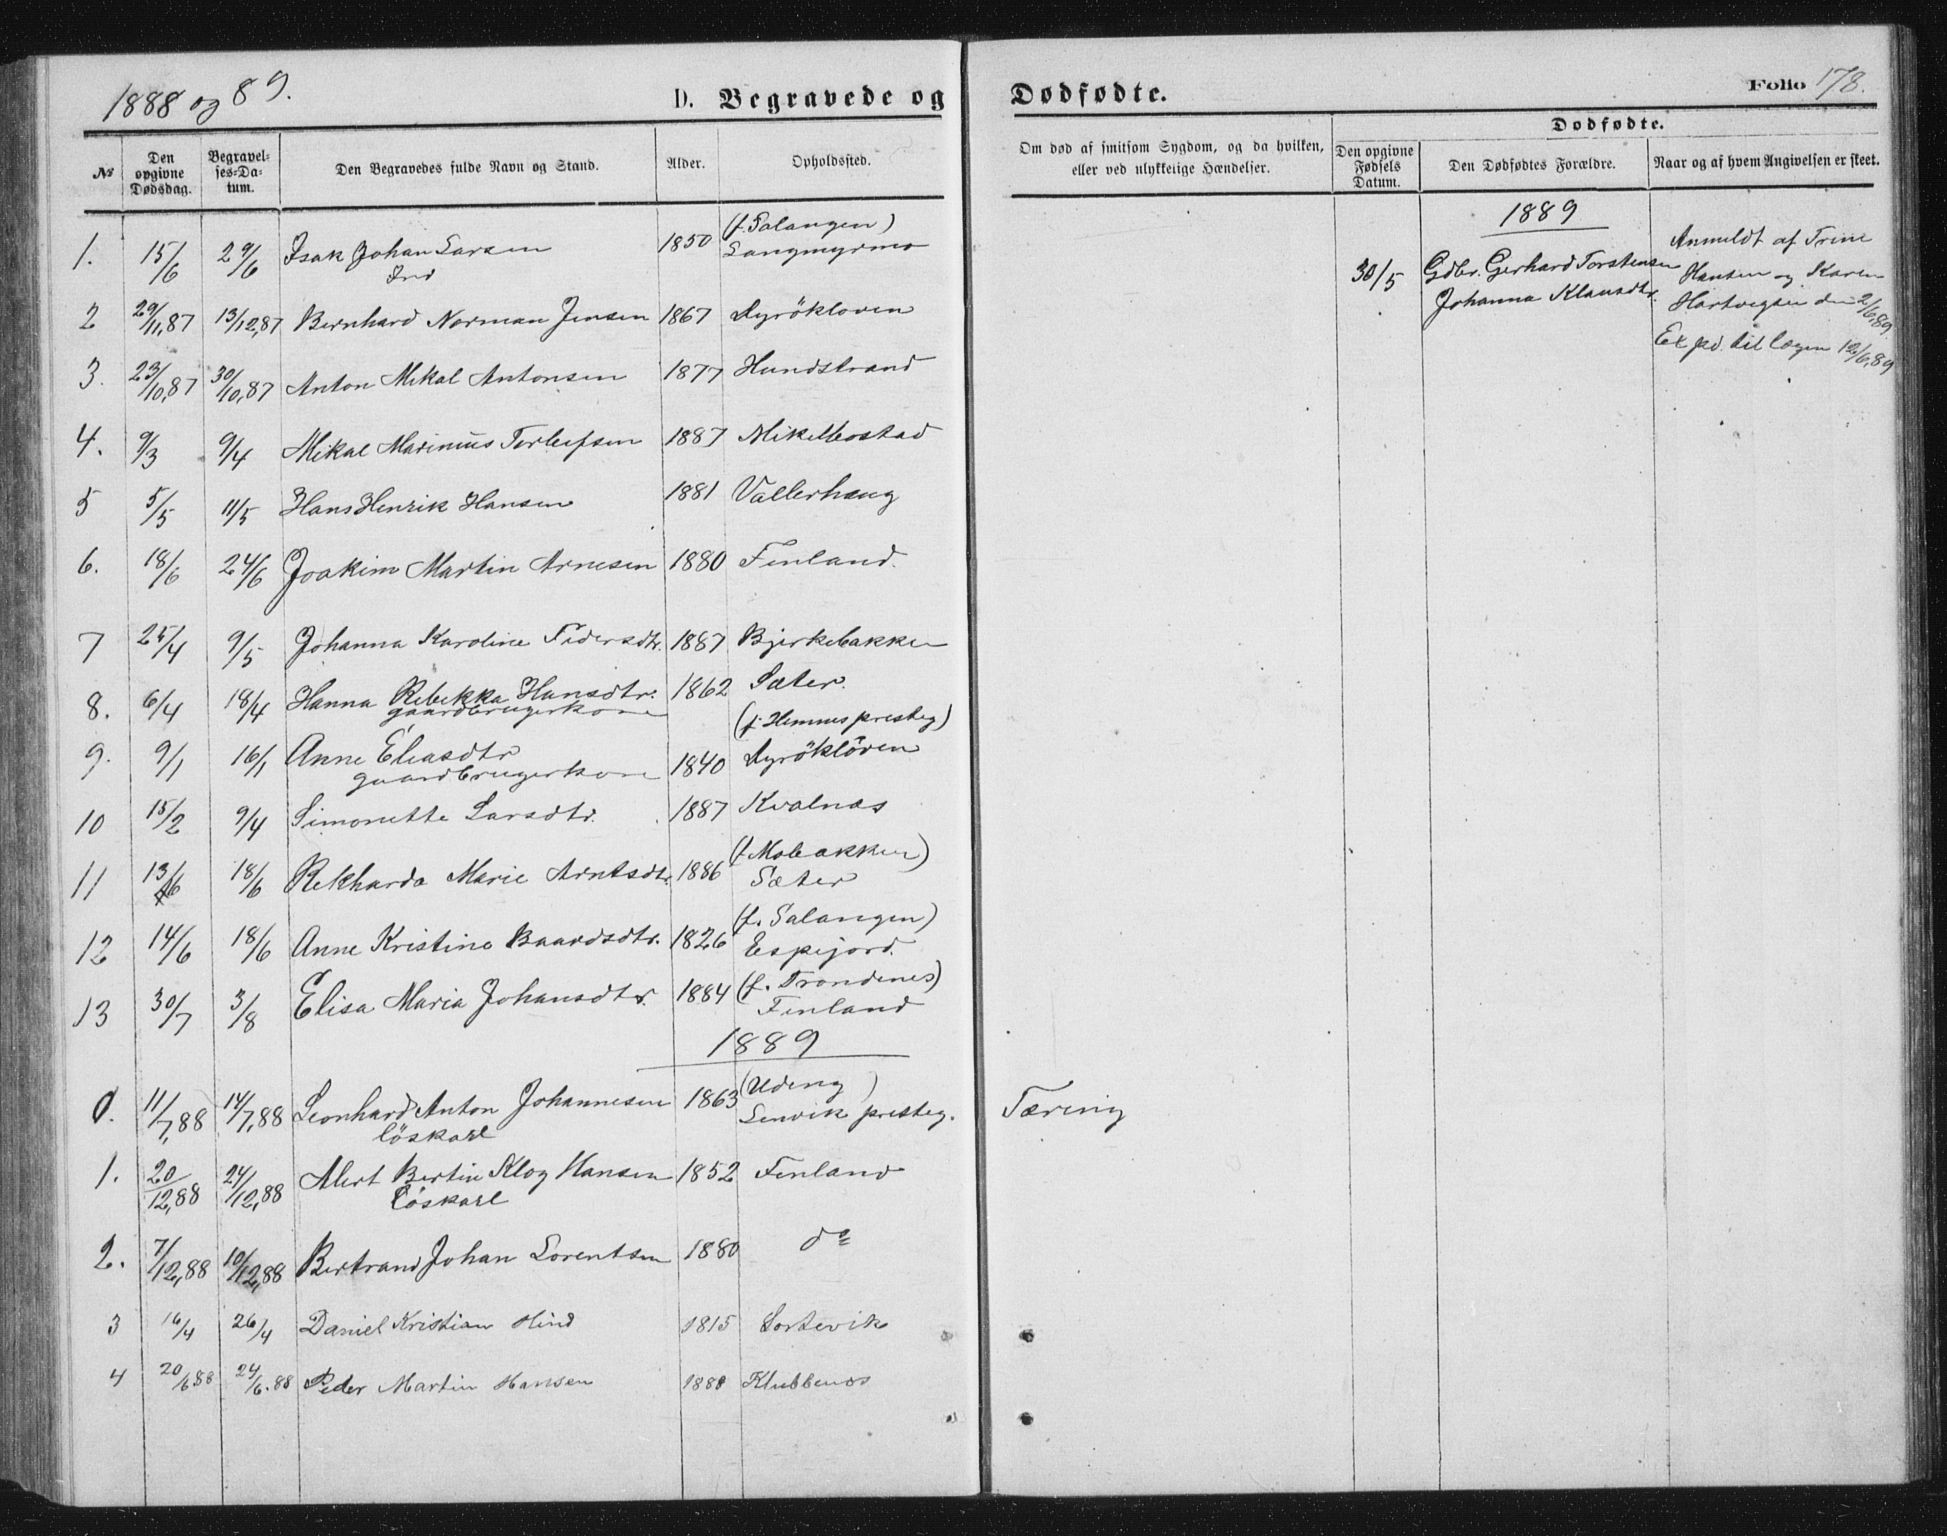 1888 og 89.
D. Begravede og Dødfødte.
Folio 178.
№ | Den opgivne Dødsdag. | Begravelses-Datum. | Den Begravedes fulde Navn og Stand. | Alder. | Opholdssted.
Om død af smitsom Sygdom, og da hvilken, eller ved ulykkelige Hændelser. | Dødfødte. | Den opgivne Fødsels Datum. | Den Dødfødtes Forældre. | Naar og af hvem Angivelsen er skeet.
(f. Salangen)
1. 15/6 29/6 Isak Johan Larsen 1850 Langmyrmo
Ind
2 29/11,87 13/12,87 Bernhard Norman Jensen 1867 Dyrökloven
3. 23/10,87 30/10,87 Anton Mikal Antonsen 1877 Hundstrand
4. 9/3 9/4 Mikal Marinius Torleifsen 1887 Mikelbostad
5 5/5 11/5 Hans Henrik Hansen 1881 Vallerhaug
6. 18/6 24/6 Joakim Martin Arnesen 1880 Finland.
7 25/4 9/5 Johanna Karoline Pedersdtr. 1887 Bjerkebakken
8. 6/4 18/4 Hanna Rebekka Hansdtr. 1862 Sæter.
gaardbrugerkone
(f. Hemnes presteg)
9. 9/1 16/1 Anne Eliasdtr 1840 Dyröklöven
gaardbrugerkone
10 15/2 9/4 Simonette Larsdtr. 1887 Kvalnæs
(f. Mobakken)
11 13/6 18/6 Rekharda Marie Arntsdtr. 1886 Sæter
(f. Salangen)
12 14/6 18/6 Anne Kristine Baardsdtr. 1826 Espejord.
(f. Trondenes)
13 30/7 3/8 Elisa Maria Johansdtr. 1884 Finland
1889
(Udeng)
0. 11/7,88 14/7,88 Leonhard Anton Johannesen 1863 Lenvik presteg. Tæring
löskarl
1. 20/12,88 24/12,88 Alert Bertin Klog Hansen 1852 Finland
Löskarl
2. 7/12,88 10/12,88 Bertrand Johan Lorentsen 1880 do
3 16/4 26/4 Daniel Kristian Hind 1815 Sortevik
4 20/6 88 24/6.88 Peder Martin Hansen 1888 Klubbenæs
1889
30/5 Gdbr. Gerhard Torstensen
Johanna Klausdtr.
Anmeldt af Trine
Hansen og Karen
Hartvigsen den 2/6,89
Exped. til lægen 12/6,89